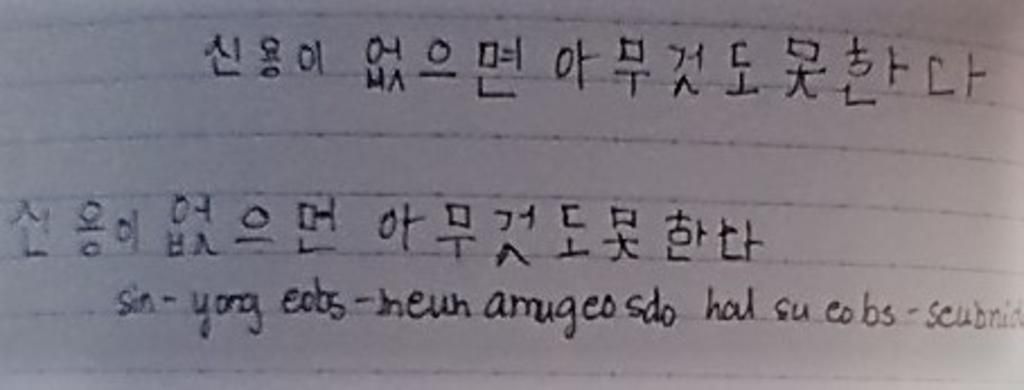 신용이 없으면 아무것도 못한다
신용이 없으면 아무것도 못한다
sin-yong eobs-meun amugeosdo hal su eobs-seubnid